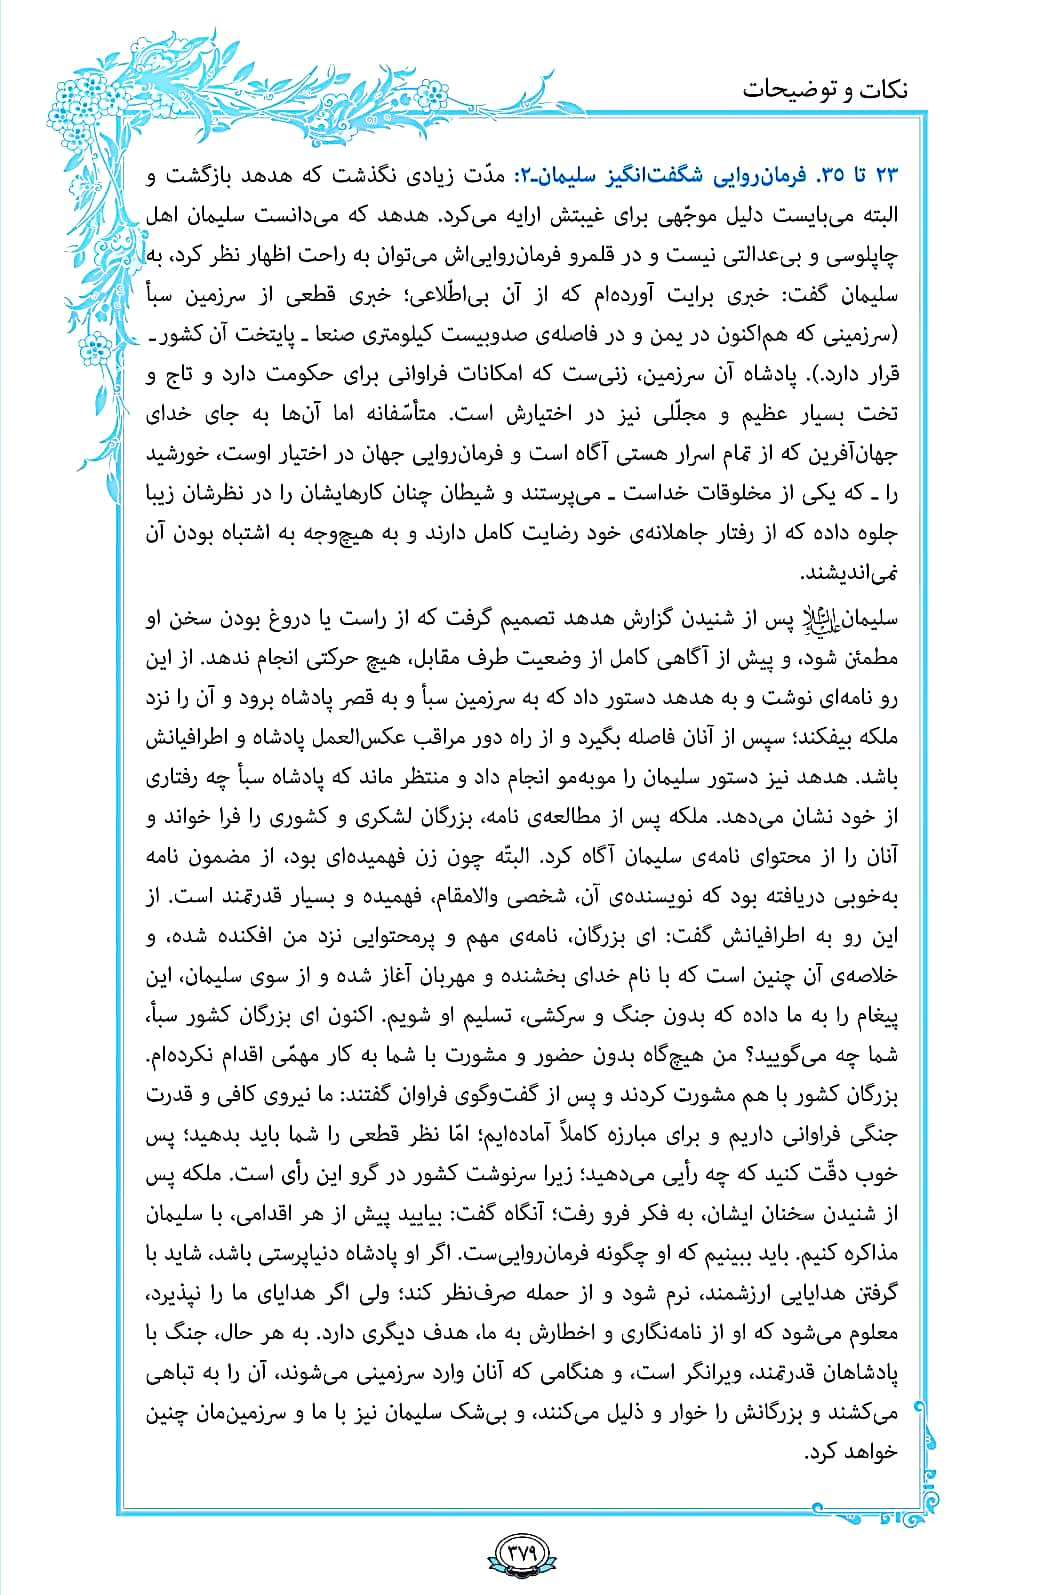 نکات و توضیحات
۲۳ تا ۳۵. فرمان‌روایی شگفت‌انگیز سلیمان‌ـ۲: مدّت زیادی نگذشت که هدهد بازگشت و
البته می‌بایست دلیل موجّهی برای غیبتش ارایه می‌کرد. هدهد که می‌دانست سلیمان اهل
چاپلوسی و بی‌عدالتی نیست و در قلمرو فرمان‌روایی‌اش می‌توان به راحت اظهار نظر کرد، به
سلیمان گفت: خبری برایت آورده‌ام که از آن بی‌اطّلاعی؛ خبری قطعی از سرزمین سبأ
(سرزمینی که هم‌اکنون در یمن و در فاصله‌ی صدوبیست کیلومتری صنعا ـ پایتخت آن کشور ـ
قرار دارد.). پادشاه آن سرزمین، زنی‌ست که امکانات فراوانی برای حکومت دارد و تاج و
تخت بسیار عظیم و مجلّلی نیز در اختیارش است. متأسّفانه اما آن‌ها به جای خدای
جهان‌آفرین که از تمام اسرار هستی آگاه است و فرمان‌روایی جهان در اختیار اوست، خورشید
را ـ که یکی از مخلوقات خداست ـ می‌پرستند و شیطان چنان کارهایشان را در نظرشان زیبا
جلوه داده که از رفتار جاهلانه‌ی خود رضایت کامل دارند و به هیچ‌وجه به اشتباه بودن آن
نمی‌اندیشند.
سلیمان علیه‌السلام پس از شنیدن گزارش هدهد تصمیم گرفت که از راست یا دروغ بودن سخن او
مطمئن شود، و پیش از آگاهی کامل از وضعیت طرف مقابل، هیچ حرکتی انجام ندهد. از این
رو نامه‌ای نوشت و به هدهد دستور داد که به سرزمین سبأ و به قصر پادشاه برود و آن را نزد
ملکه بیفکند؛ سپس از آنان فاصله بگیرد و از راه دور مراقب عکس‌العمل پادشاه و اطرافیانش
باشد. هدهد نیز دستور سلیمان را موبه‌مو انجام داد و منتظر ماند که پادشاه سبأ چه رفتاری
از خود نشان می‌دهد. ملکه پس از مطالعه‌ی نامه، بزرگان لشکری و کشوری را فرا خواند و
آنان را از محتوای نامه‌ی سلیمان آگاه کرد. البتّه چون زن فهمیده‌ای بود، از مضمون نامه
به‌خوبی دریافته بود که نویسنده‌ی آن، شخصی والامقام، فهمیده و بسیار قدرتمند است. از
این رو به اطرافیانش گفت: ای بزرگان، نامه‌ی مهم و پرمحتوایی نزد من افکنده شده، و
خلاصه‌ی آن چنین است که با نام خدای بخشنده و مهربان آغاز شده و از سوی سلیمان، این
پیغام را به ما داده که بدون جنگ و سرکشی، تسلیم او شویم. اکنون ای بزرگان کشور سبأ،
شما چه می‌گویید؟ من هیچ‌گاه بدون حضور و مشورت با شما به کار مهمّی اقدام نکرده‌ام.
بزرگان کشور با هم مشورت کردند و پس از گفت‌وگوی فراوان گفتند: ما نیروی کافی و قدرت
جنگی فراوانی داریم و برای مبارزه کاملاً آماده‌ایم؛ امّا نظر قطعی را شما باید بدهید؛ پس
خوب دقّت کنید که چه رأیی می‌دهید؛ زیرا سرنوشت کشور در گرو این رأی است. ملکه پس
از شنیدن سخنان ایشان، به فکر فرو رفت؛ آنگاه گفت: بیایید پیش از هر اقدامی، با سلیمان
مذاکره کنیم. باید ببینیم که او چگونه فرمان‌روایی‌ست. اگر او پادشاه دنیاپرستی باشد، شاید با
گرفتن هدایایی ارزشمند، نرم شود و از حمله صرف‌نظر کند؛ ولی اگر هدایای ما را نپذیرد،
معلوم می‌شود که او از نامه‌نگاری و اخطارش به ما، هدف دیگری دارد. به هر حال، جنگ با
پادشاهان قدرتمند، ویرانگر است، و هنگامی که آنان وارد سرزمینی می‌شوند، آن را به تباهی
می‌کشند و بزرگانش را خوار و ذلیل می‌کنند، و بی‌شک سلیمان نیز با ما و سرزمین‌مان چنین
خواهد کرد.
۳۷۹